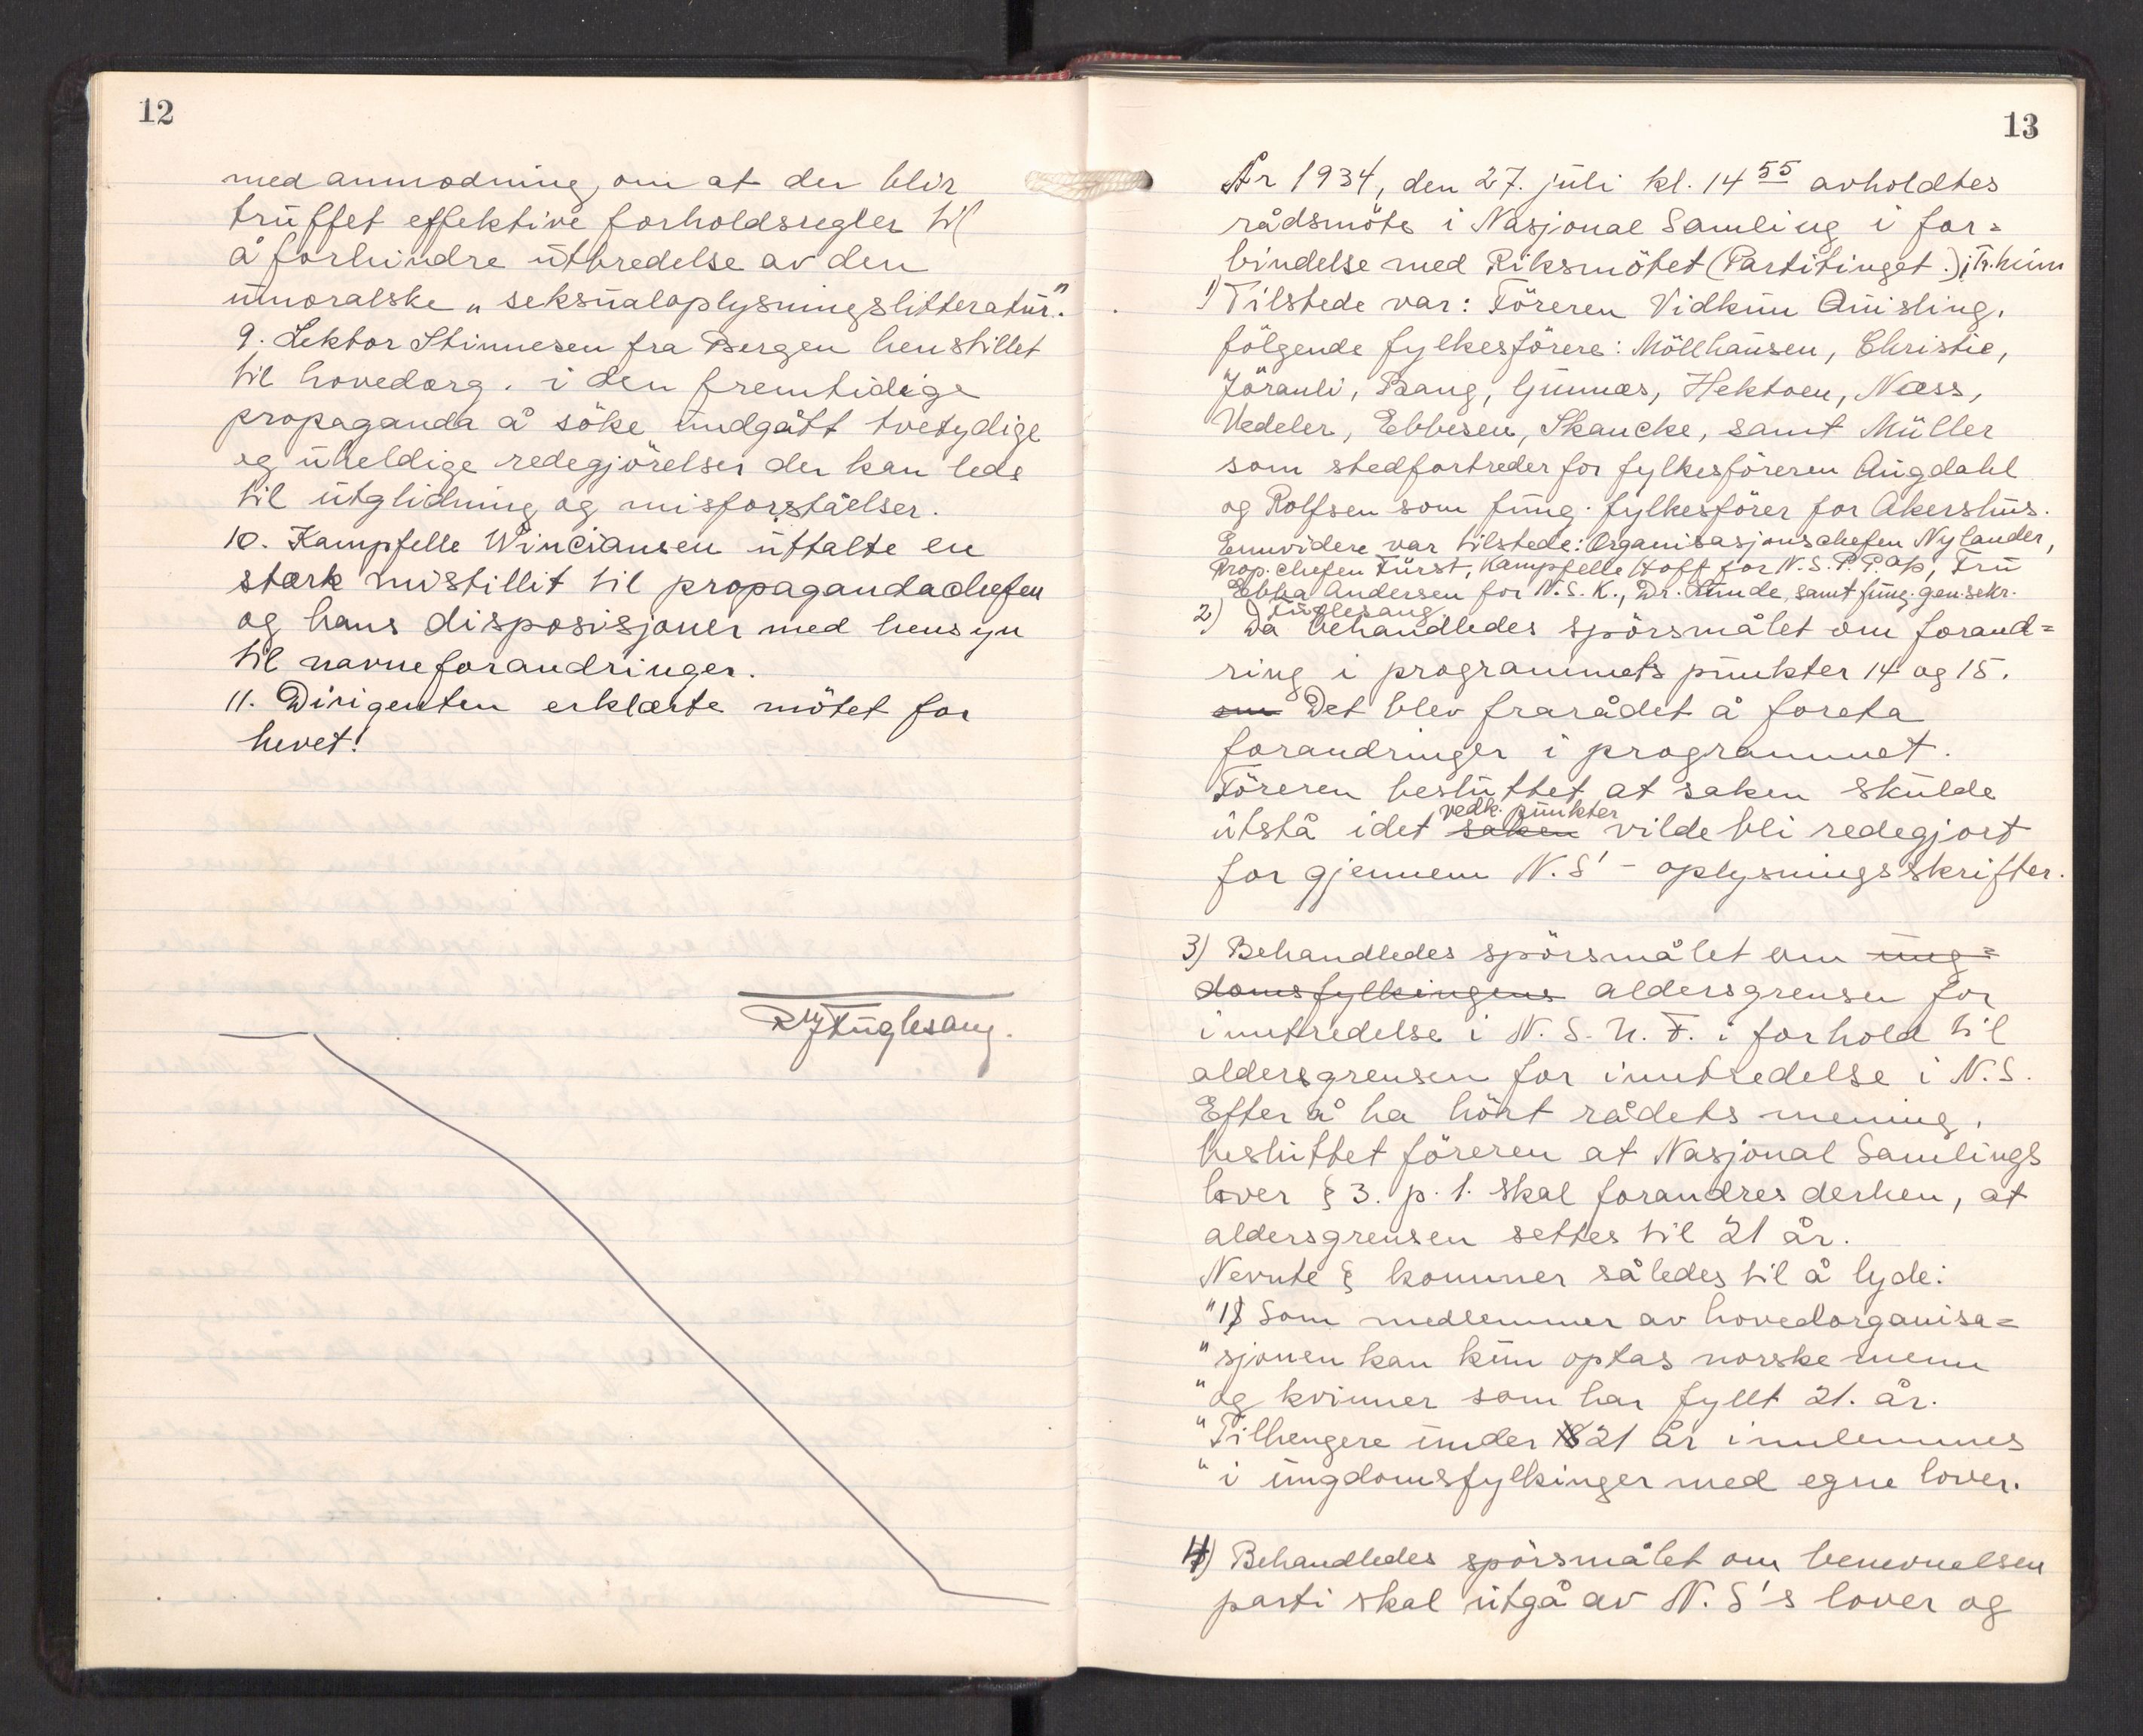 12
med anmodning, om at der blir
truffet effektive forholdsregler til
å forhindre utbredelse av den
umoralske „seksualoplysningslitteratur."
9. Lektor Stinnesen fra Bergen henstillet
til hovedorg. i den fremtidige
propaganda å söke undgått tvetydige
og uheldige redegjörelser der kan lede
til utglidning og misforståelser.
10. Kampfelle Winciansen uttalte en
sterk mistillit til propagandachefen
og hans disposisjoner med hensyn
til navneforandringer.
11. Dirigenten erklærte mötet for
hevet!
RJFuglesang.
13
År 1934, den 27. juli kl. 14 55 avholdtes
rådsmöte i Nasjonal Samling i for=
bindelse med Riksmötet (Partitinget.) i Tr.heim
1) Tilstede var: Föreren Vidkun Quisling,
fölgende fylkesförere: Möllhausen, Christie,
Jöranli, Bang, Gunnæs, Hektoen, Næss,
Vedeler, Ebbesen, Skancke, samt Müller
som stedfortreder for fylkesföreren Augdahl
og Rolfsen som fung. fylkesförer for Akershus.
Ennvidere var tilstede: Organisasjonschefen Nylander,
Prop.chefen Fürst, Kampfelle Hoff for N.S.P.P.ap, Fru
Ebba Andersen for N.S.K., Dr. Lunde, samt fung. gen.sekr.
Fuglesang
2) Da behandledes spörsmålet om forand=
ring i programmets punkter 14 og 15.
om Det blev frarådet å foreta
forandringer i programmet.
Föreren besluttet at saken skulde
vedk. punkter
utstå idet saken vilde bli redegjort
for gjennem N.S' - oplysningsskrifter.
3) Behandledes spörsmålet om ung=
domsfylkingens aldersgrensen for
inntredelse i N.S.U.F. i forhold til
aldersgrensen for inntredelse i N.S.
Efter å ha hört rådets mening,
besluttet föreren at Nasjonal Samlings
lover § 3. p. 1. skal forandres derhen, at
aldersgrensen settes til 21 år.
Nevnte § kommer således til å lyde:
"1) Som medlemmer av hovedorganisa=
"sjonen kan kun optas norske menn
"og kvinner som har fyllt 21. år.
"Tilhengere under 18 21 år innlemmes
"i ungdomsfylkinger med egne lover.
4) Behandledes spörsmålet om benevnelsen
parti skal utgå av N.S's lover og